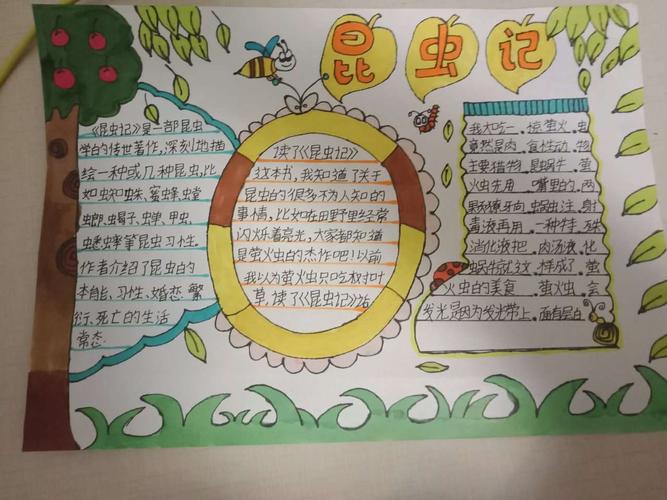 昆虫记
《昆虫记》是一部昆虫
学的传世著作,深刻地描
绘一种或几种昆虫,比
如蜘蛛、蜜蜂、螳
螂、蝎子、蝉、甲虫、
蟋蟀等昆虫习性。
作者介绍了昆虫的
本能、习性、婚恋、繁
衍、死亡的生活
常态.
读了《昆虫记》
这本书,我知道了关于
昆虫的很多不为人知的
事情,比如在田野里经常
闪烁着亮光,大家都知道
是萤火虫的杰作吧!以前
我以为萤火虫只吃树叶
草,读了《昆虫记》后
我大吃一惊,萤火虫
竟然是肉食性动物
主要猎物是蜗牛,萤
火虫先用嘴里的两
颗獠牙向蜗牛注射
毒液再用一种特殊
消化液把肉汤液化
蜗牛就这样成了萤
火虫的美食 萤火虫会
发光是因为发光带上面有层白